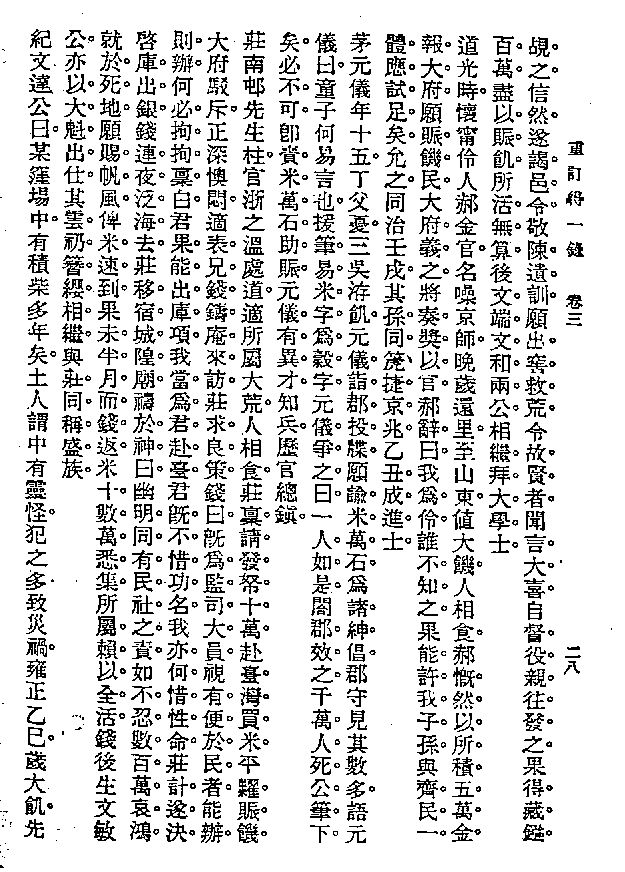 重訂得一錄 卷三 二八
覘之信然遂謁邑令敬陳遺訓願出窖救荒令故賢者聞言大喜自督役親往發之果得藏鏹。
百萬盡以賑飢所活無算後文端文和兩公相繼拜大學士。
道光時懷甯伶人郝金官名噪京師晚歲還里至山東値大饑人相食郝慨然以所積五萬金
報大府願賑饑民大府義之將奏奬以官郝辭曰我爲伶誰不知之果能許我子孫與齊民一
體應試足矣允之同治壬戌其孫同箎捷京兆乙丑成進士
茅元儀年十五丁父憂三吳洊飢元儀詣郡投牒願諭米萬石爲諸紳倡郡守見其數多語元
儀曰童子何易言也援筆易米字爲穀字元儀爭之曰一人如是闔郡效之千萬人死公筆下
矣必不可卽賫米萬石助賑元儀有異才知兵歷官總鎭
莊南邨先生柱官浙之溫處道適所屬大荒人相食莊稟請發帑十萬赴臺灣買米平糶賑饑
大府駁斥正深懊悶適表兄錢鑄庵來訪莊求良策錢曰旣爲監司大員視有便於民者能辦
則辦何必拘拘稟白君果能出庫項我當爲君赴臺君旣不惜功名我亦何惜性命莊計遂決
啓庫出銀錢連夜泛海去莊移宿城隍廟禱於神曰幽明同有民社之責如不忍數百萬哀鴻
就於死地願賜帆風俾米速到果未半月而錢返米十數萬悉集所屬賴以全活錢後生文敏
公亦以大魁出仕其雲礽簪纓相繼與莊同稱盛族
紀文達公曰某窪場中有積柴多年矣土人謂中有靈怪犯之多致災禍雍正乙巳歲大飢先